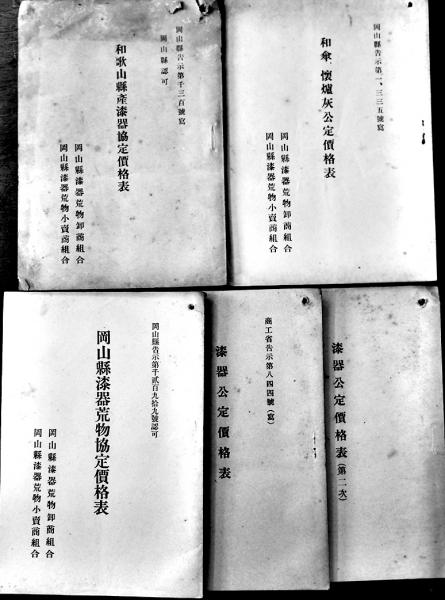 岡山縣告示第千三百號寫
岡山縣認可
和歌山縣產漆器協定價格表
岡山縣漆器荒物卸商組合
岡山縣漆器荒物小賣商組合
岡山縣告示第一、三三五號寫
和傘、懷爐灰公定價格表
岡山縣漆器荒物卸商組合
岡山縣漆器荒物小賣商組合
岡山縣吿示第千貳百九拾九號認可
岡山縣漆器荒物協定價格表
岡山縣漆器荒物卸商組合
岡山縣漆器荒物小賣商組合
商工省告示第八四四號(寫)
漆器公定價格表
漆器公定價格表(第二次)